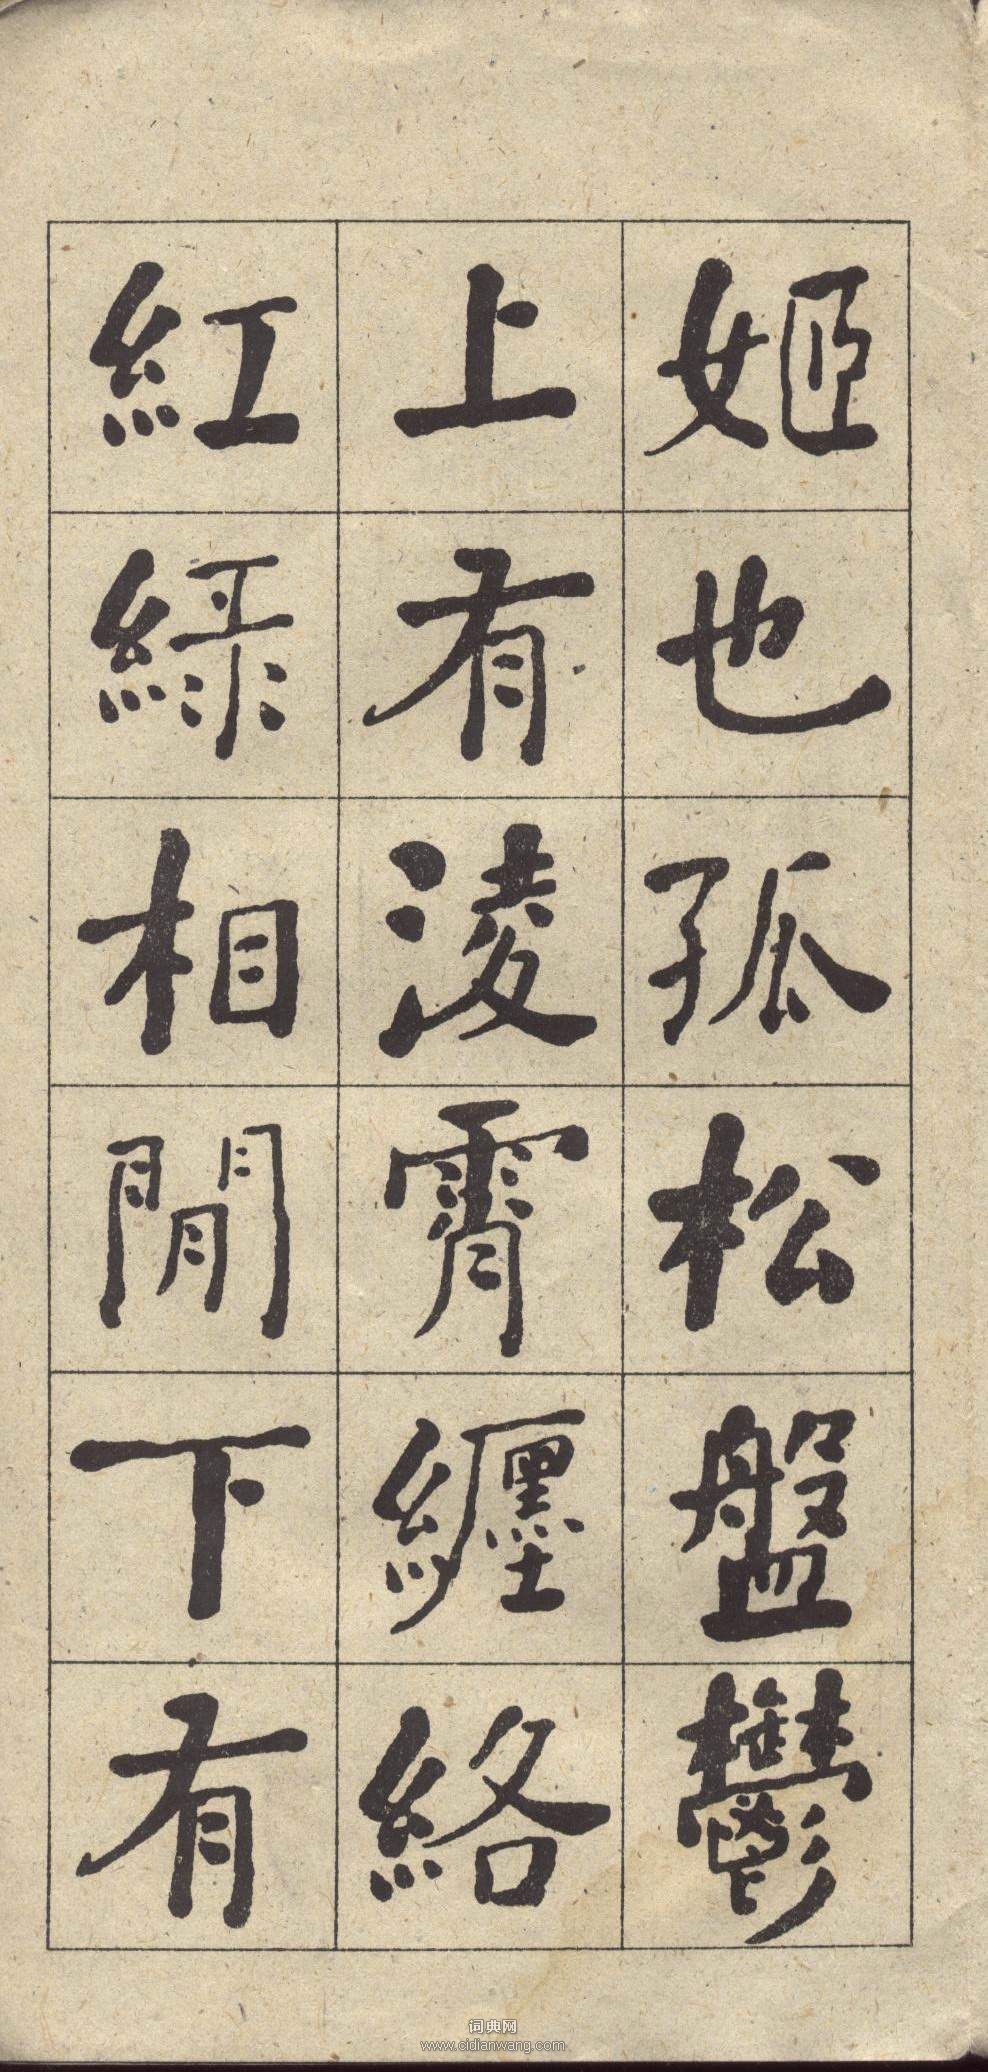 姬也孤松盤鬱
上有淩霄纏絡
紅綠相閒下有
词典网
www.cidianwang.com